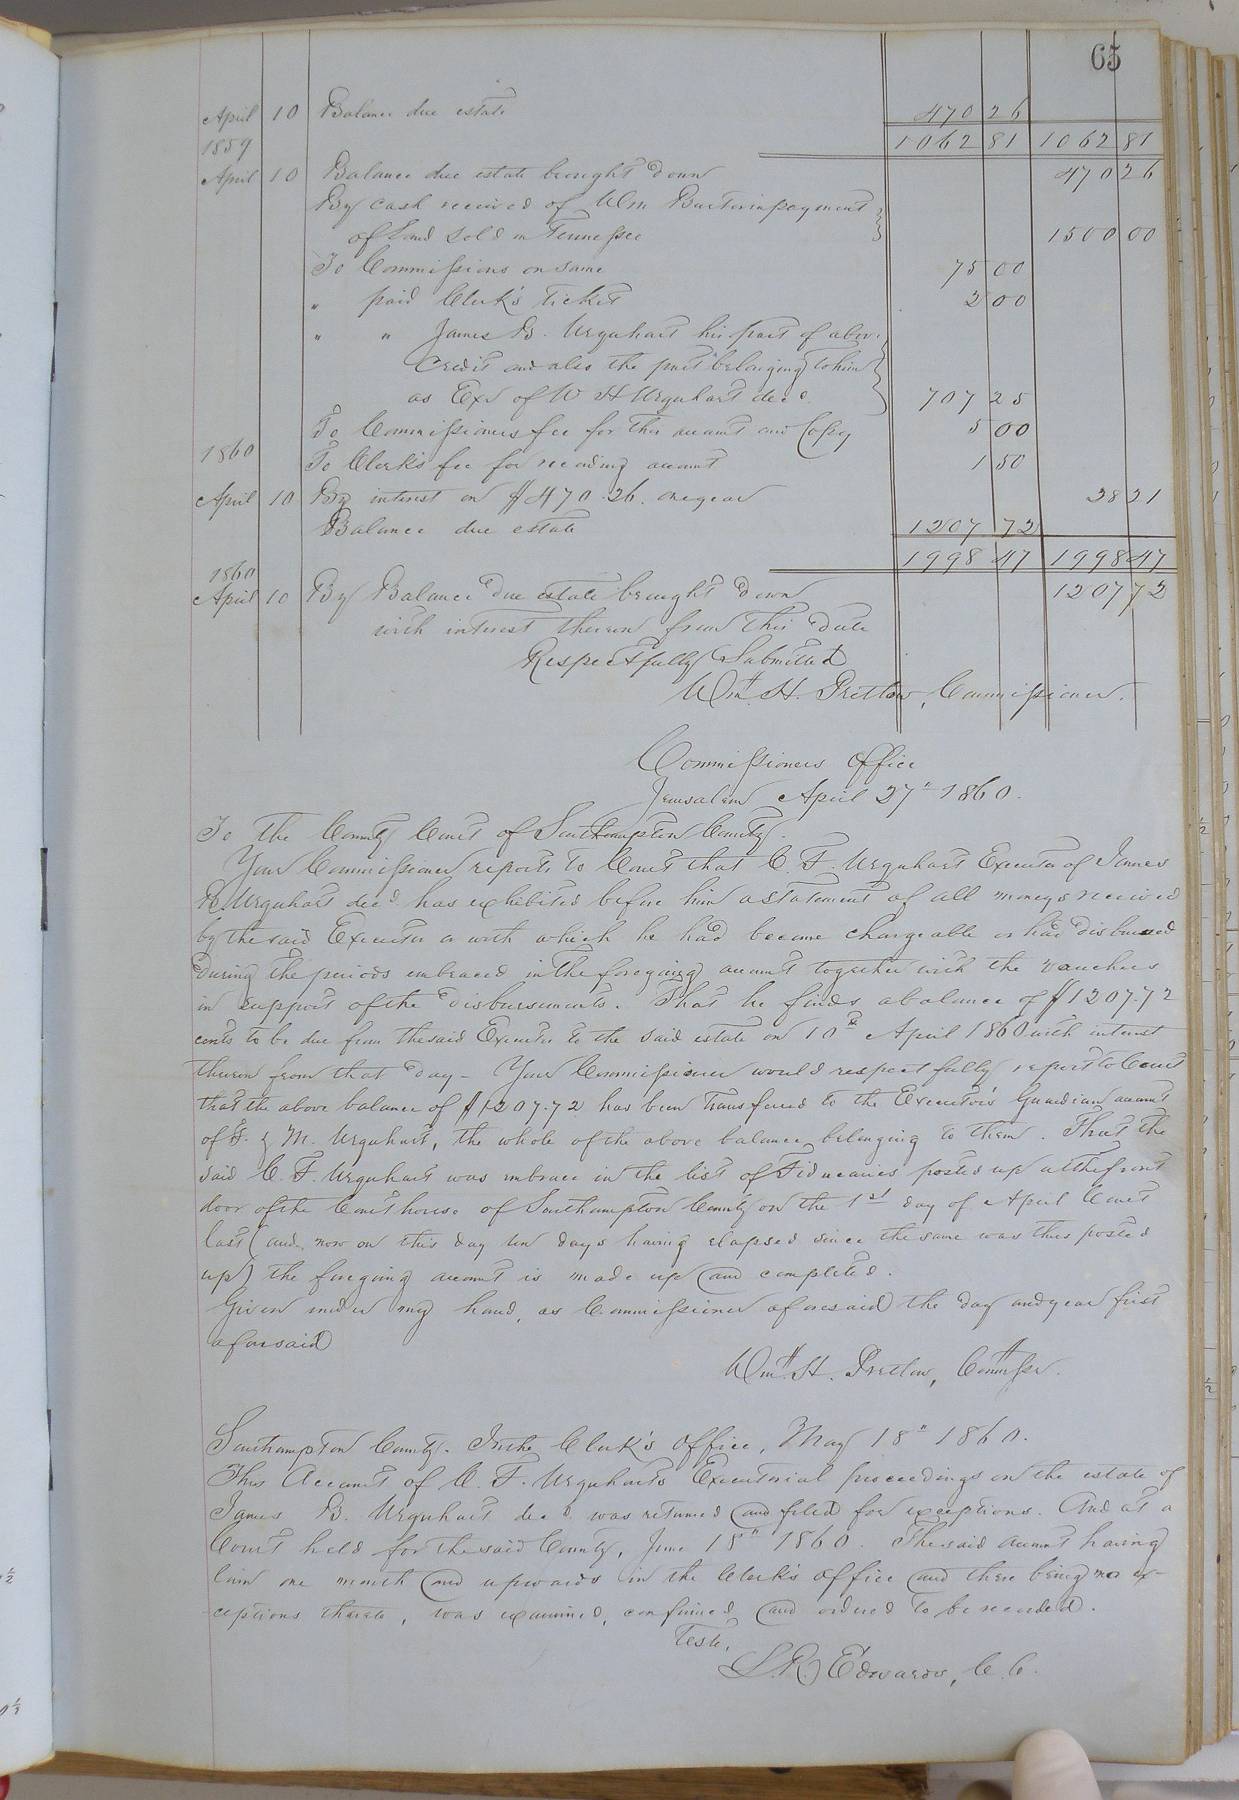 65
April 10 Balance due estate 470 26
1859 1062 81 1062 81
April 10 Balance due estate brought down 470 26
By cash received of Wm in payment
of Land sold in Tennessee 1500 00
To Commissions on same 75 00
" paid Clerk's Ticket 2 00
" " James B. Urquhart his part of above
Credit and also the part belonging to him
as Exr of W H Urquhart decd. 707 25
To Commissioners fee for this account and Copy 5 00
1860 To Clerk's fee for recording account 1 50
April 10 By interest on $470.26. one year 28 21
Balance due estate 1207 72
1998 47 1998 47
1860
April 10 By Balance due estate brought down 1207 72
with interest thereon from this date
Respectfully Submitted
Wm. H. Pretlow, Commissioner.
Commissioners Office
Jerusalem April 27" 1860.
To the County Court of Southampton County.
Your Commissioner reports to Court that C. F. Urquhart Executor of James
B. Urquhart decd. has exhibited before him a statement of all moneys received
by the said Executor or with which he had become chargeable or had disbursed
during the periods embraced in the foregoing account together with the vouchers
in support of the disbursements. That he finds a balance of $1207.72
cents to be due from the said Executor to the said estate on 10th April 1860 with interest
thereon from that day - Your Commissioner would respectfully report to Court
that the above balance of $1207.72 has been transferred to the Executor's Guardian account
of F. & M. Urquhart, the whole of the above balance belonging to them. That the
said C. F. Urquhart was embrace in the list of Fiduciaries posted up at the front
door of the Court house of Southampton County on the 1st day of April Court
last (and now on this day ten days having elapsed since the same was thus posted
up) the foregoing account is made up and completed.
Given under my hand, as Commissioner aforesaid the day and year first
aforesaid
Wm. H. Pretlow, Commssr.
Southampton County. In the Clerk's Office, May 18" 1860.
This Account of C. F. Urquhart's Executorial proceedings on the estate of
James B. Urquhart decd. was returned and filed for exceptions. And at a
Court held for the said County, June 18" 1860. The said account having
lain one month and upwards in the Clerk's office and there being no ex-
ceptions thereto, was examined, confirmed and ordered to be recorded.
Teste,
L. R. Edwards, C. C.